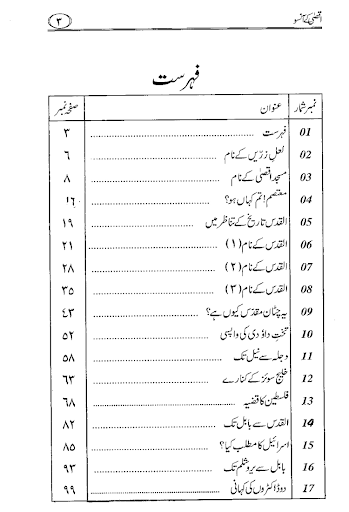 اقصیٰ کے آنسو ۳
فہرست
نمبر شمار عنوان صفحہ نمبر
01 فہرست ۳
02 نعلِ زرّیں کے نام ۶
03 مسجد اقصیٰ کے نام ۸
04 معتصم! تم کہاں ہو؟ ۱۶
05 القدس تاریخ کے تناظر میں ۱۹
06 القدس کے نام (۱) ۲۱
07 القدس کے نام (۲) ۲۸
08 القدس کے نام (۳) ۳۵
09 یہ چٹان مقدّس کیوں ہے؟ ۴۳
10 تختِ داؤدی کی واپسی ۵۲
11 دجلہ سے نیل تک ۵۸
12 خلیج سوئز کے کنارے ۶۳
13 فلسطین کا قضیہ ۶۸
14 القدس سے بابل تک ۸۲
15 اسرائیل کا مطلب کیا؟ ۸۵
16 بابل سے یروشلم تک ۹۳
17 دو ڈاکٹروں کی کہانی ۹۹